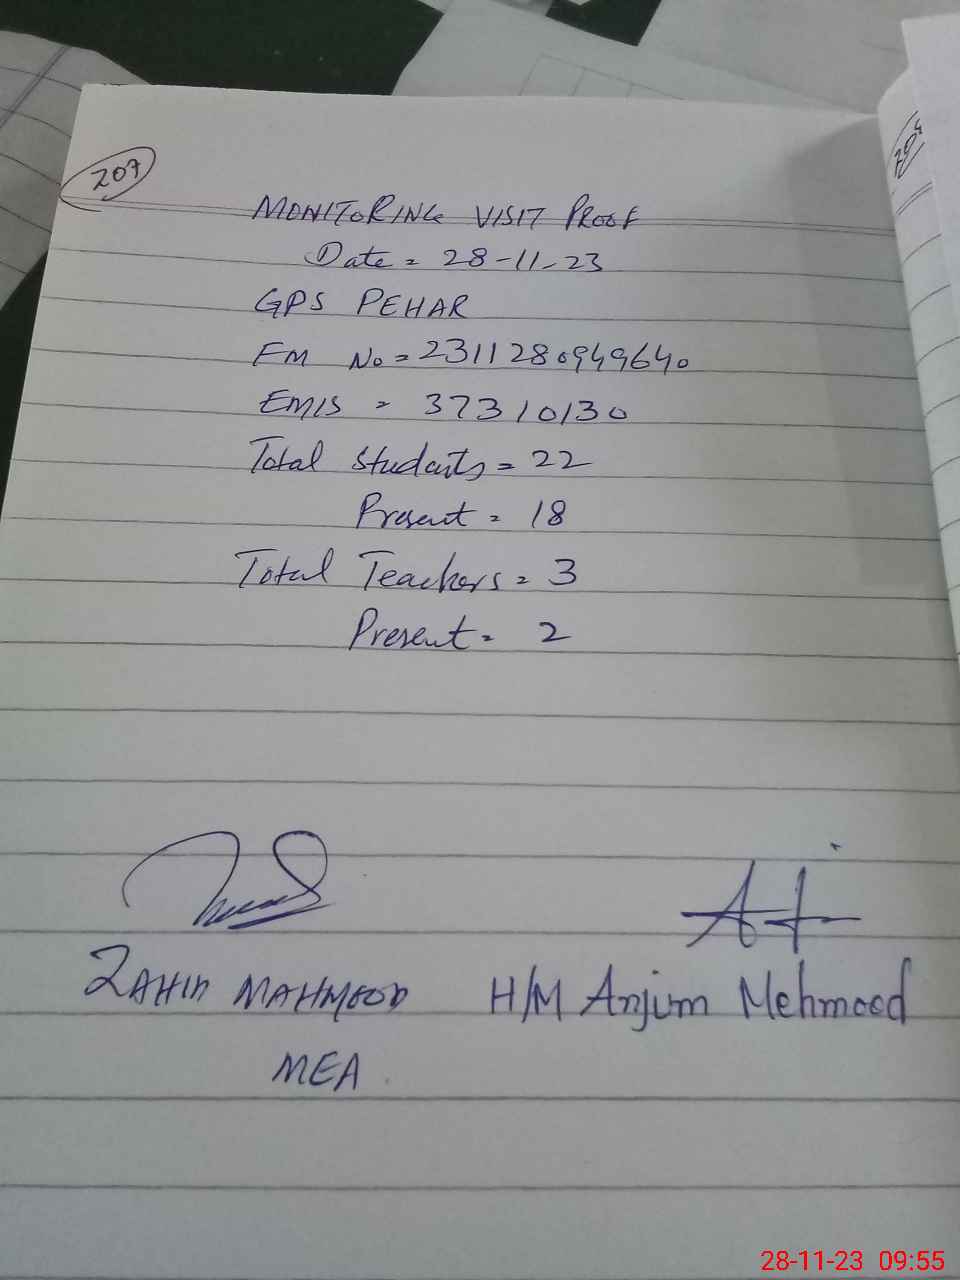 207
MONITORING VISIT PROOF
Date = 28-11-23
GPS PEHAR
FM No = 2311280949640
EMIS = 37310130
Total Students = 22
Present = 18
Total Teachers = 3
Present = 2
ZAHID MAHMOOD H/M Anjum Mehmood
MEA
28-11-23 09:55